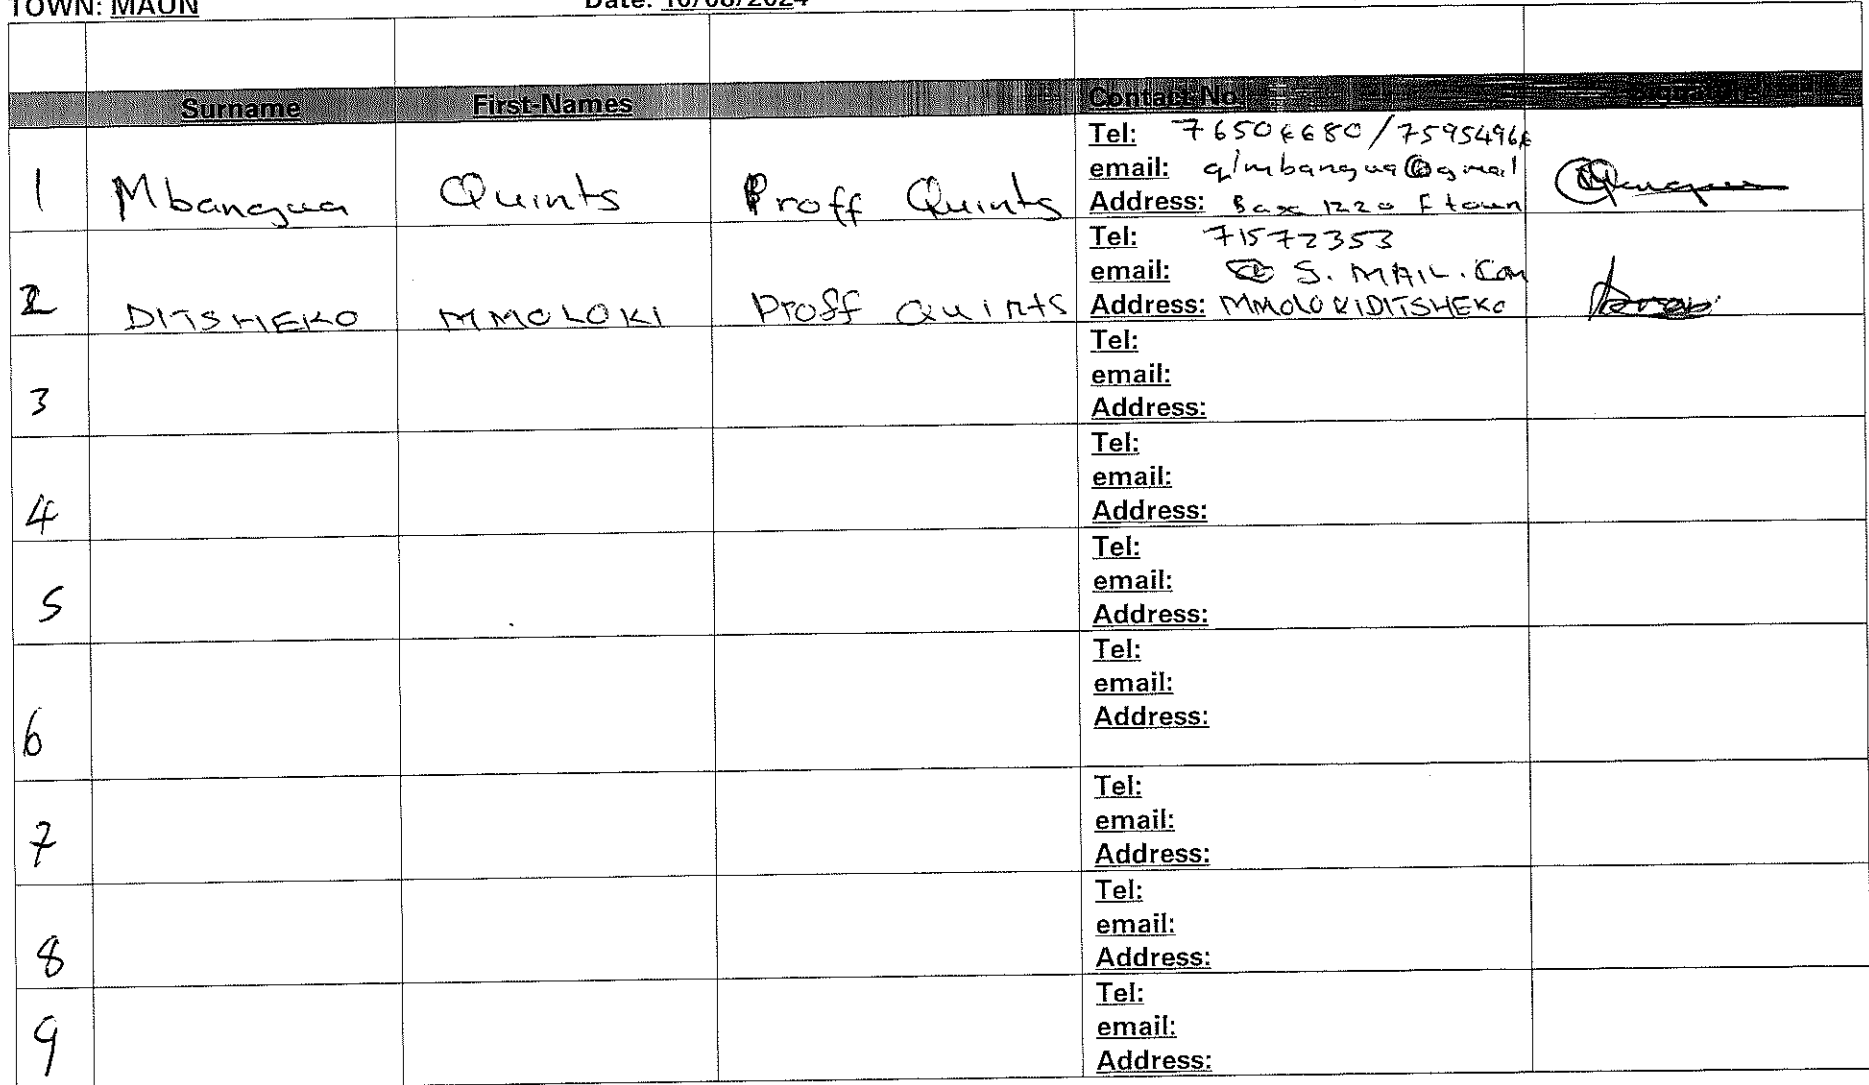 TOWN: MAUN Date: 16/08/2024
Surname First-Names Contact No. Signature
1 Mbangua Quints Proff Quints
Tel: 76504680/7595496
email: qlmbangua@gmail
Address: Box 1220 F town
2 DITSHEKO MMOLOKI Proff Quints
Tel: 71572353
email: S. MAIL. COM
Address: MMOLOKIDITSHEKO
3
Tel:
email:
Address:
4
Tel:
email:
Address:
5
Tel:
email:
Address:
6
Tel:
email:
Address:
7
Tel:
email:
Address:
8
Tel:
email:
Address:
9
Tel:
email:
Address: